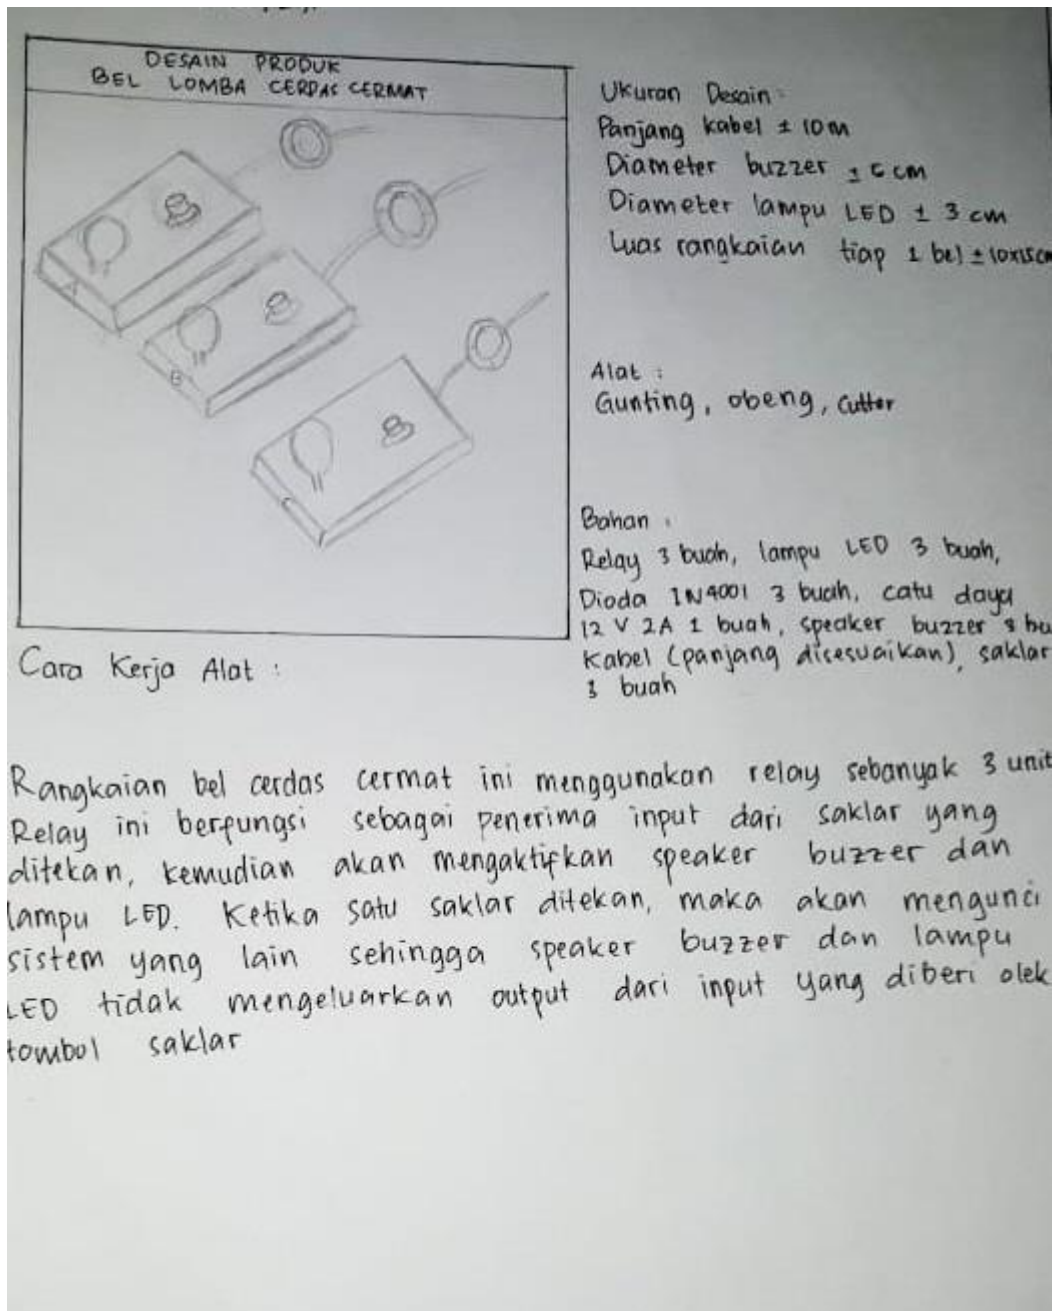 DESAIN PRODUK
BEL LOMBA CERDAS CERMAT
A
B
C
Ukuran Desain:
Panjang kabel ± 10 m
Diameter buzzer ± cm
Diameter lampu LED ± 3 cm
Luas rangkaian tiap 1 bel ± 10x15cm
Alat :
Gunting, obeng, cutter
Bahan :
Relay 3 buah, lampu LED 3 buah,
Dioda IN4001 3 buah, catu daya
12 V 2A 1 buah, speaker buzzer bu
Kabel (panjang disesuaikan), saklar
3 buah
Cara Kerja Alat :
Rangkaian bel cerdas cermat ini menggunakan relay sebanyak 3 unit
Relay ini berfungsi sebagai penerima input dari saklar yang
ditekan, kemudian akan mengaktifkan speaker buzzer dan
lampu LED. Ketika satu saklar ditekan, maka akan mengunci
sistem yang lain sehingga speaker buzzer dan lampu
LED tidak mengeluarkan output dari input yang diberi olek
tombol saklar